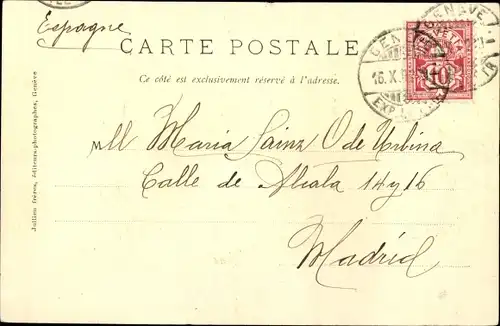 Espagne
CARTE POSTALE
Ce côté est exclusivement réservé à l'adresse.
Mll Maria Sainz O de Urbina
Calle de Alcala 14 y 16
Madrid
Jullien frères, éditeurs-photographes, Genève
GENÈVE
10